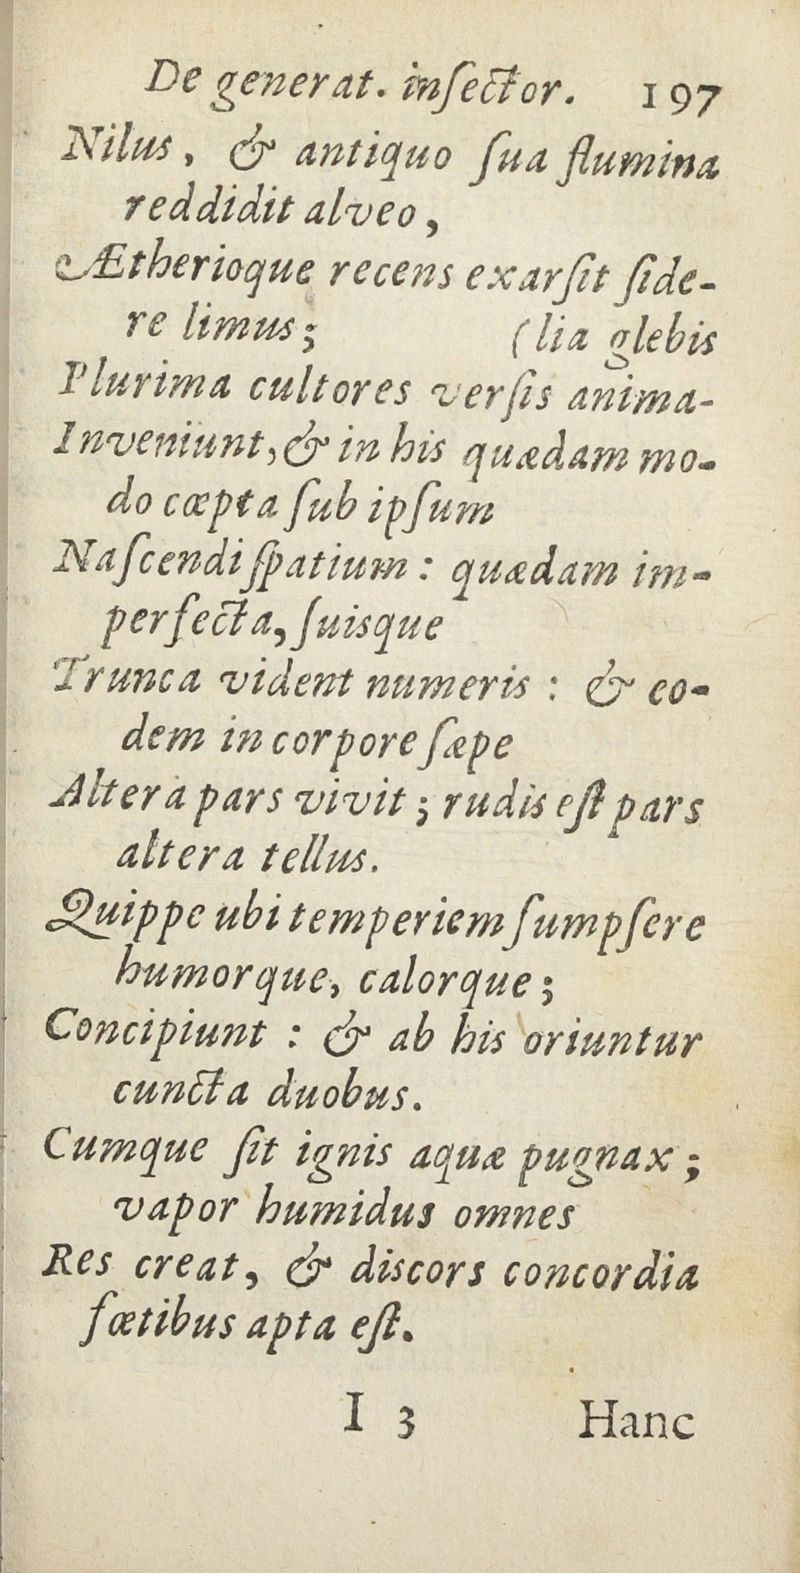 De generat. inſector. 197
Nilus, & antiquo ſua flumina
reddidit alveo,
Ætherioque recens exarſit ſide-
re limus; (lia glebis
Plurima cultores verſis anima-
Inveniunt, & in his quædam mo-
do cœpta ſub ipſum
Naſcendi ſpatium: quædam im-
perfecta, ſuisque
Trunca vident numeris: & eo-
dem in corpore ſæpe
Altera pars vivit; rudis eſt pars
altera tellus.
Quippe ubi temperiem ſumpſere
humorque, calorque;
Concipiunt: & ab his oriuntur
cuncta duobus.
Cumque ſit ignis aquæ pugnax;
vapor humidus omnes
Res creat, & discors concordia
fœtibus apta eſt.
I 3 Hanc